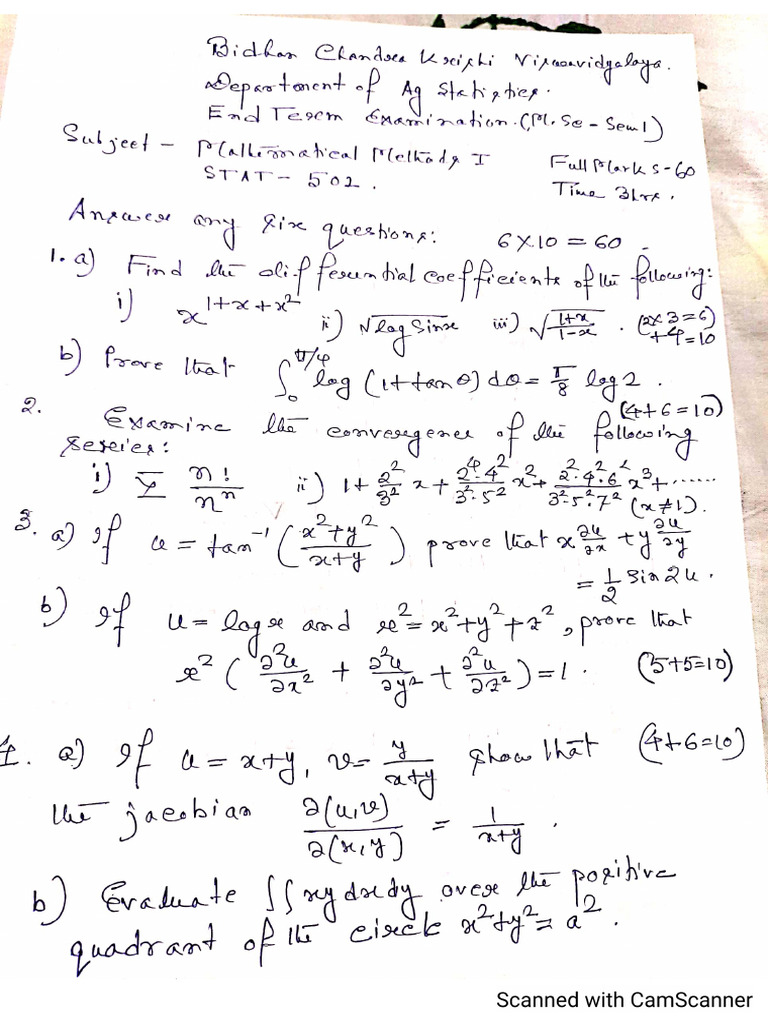 Bidhan Chandra Krishi Viswavidyalaya.
Department of Ag Statistics.
End Term Examination. (M.Sc - Sem 1)
Subject - Mathematical Methods I Full Marks - 60
STAT - 502. Time 3hrs.
Answer any six questions: 6×10 = 60
1. a) Find the differential coefficients of the following:
i) x^(1+x+x²) ii) √log sinx iii) √((1+x)/(1-x)) . (2×3=6) +4=10
b) Prove that ∫₀^(π/4) log (1+tanθ) dθ = π/8 log 2.
2. Examine the convergence of the following (4+6=10)
series:
i) Σ n!/nⁿ ii) 1 + 2²/3² x + 2²·4²/3²·5² x² + 2²·4²·6²/3²·5²·7² x³ + ...... (x≠1).
3. a) If u = tan⁻¹ ((x²+y²)/(x+y)) prove that x ∂u/∂x + y ∂u/∂y
= 1/2 sin 2u.
b) If u = log r and r² = x²+y²+z², prove that
r² (∂²u/∂x² + ∂²u/∂y² + ∂²u/∂z²) = 1. (5+5=10)
4. a) If u = x+y, v = y/(x+y) show that (4+6=10)
the jacobian ∂(u,v)/∂(x,y) = 1/(x+y).
b) Evaluate ∫∫xy dxdy over the positive
quadrant of the circle x²+y² = a².
Scanned with CamScanner